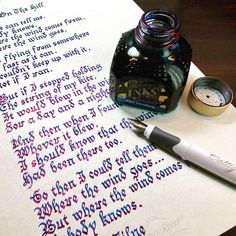 On The Hill
can tell me,
knows,
where the wind comes from,
where the wind goes.
flying from somewhere
fast as it can,
couldn't keep up with it,
if I ran.
But if I stopped holding
The string of my kite,
It would blow in the
For a day and a night
And then when I
Wherever it blew,
I should know that the wind
Had been there too.
So then I could tell them
Where the wind goes...
But where the wind comes
body knows.
Milne
INKS